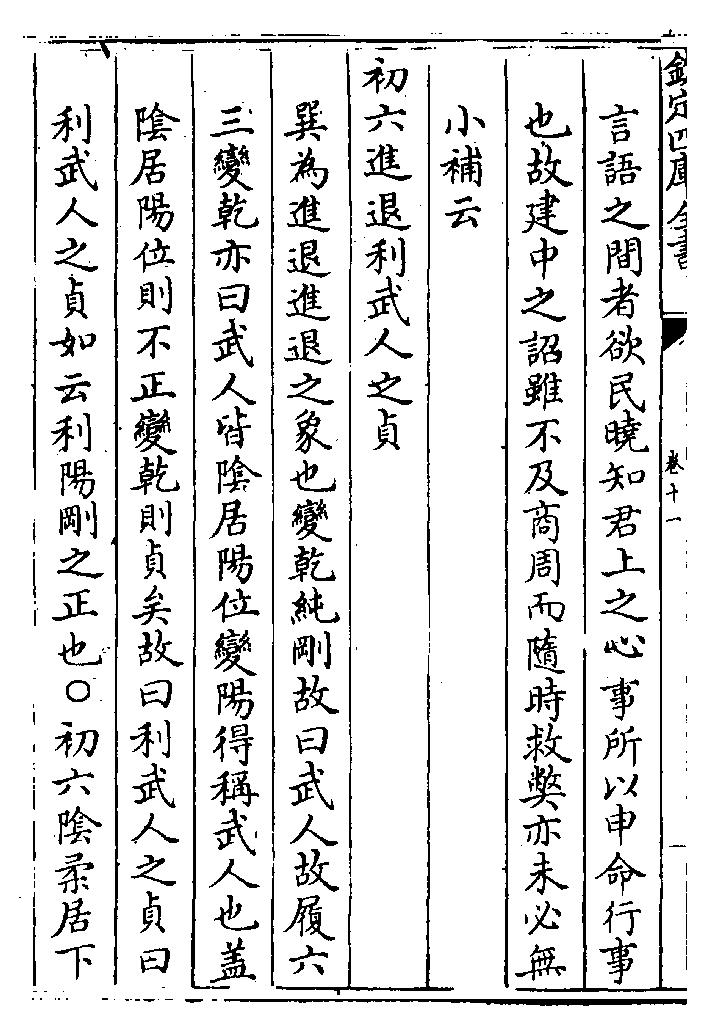 欽定四庫全書
卷十一
言語之間者欲民曉知君上之心事所以申命行事
也故建中之詔雖不及商周而隨時救弊亦未必無
小補云
初六進退利武人之貞
巽為進退進退之象也變乾純剛故曰武人故履六
三變乾亦曰武人皆陰居陽位變陽得稱武人也盖
陰居陽位則不正變乾則貞矣故曰利武人之貞曰
利武人之貞如云利陽剛之正也○初六陰柔居下